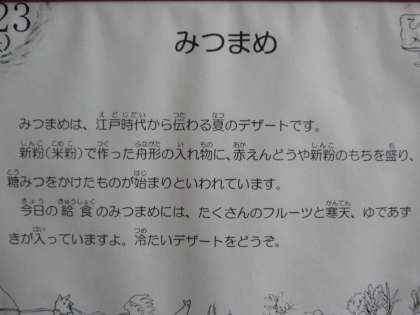 23
みつまめ
みつまめは、江戸時代から伝わる夏のデザートです。
新粉(米粉)で作った舟形の入れ物に、赤えんどうや新粉のもちを盛り、
糖みつをかけたものが始まりといわれています。
今日の給食のみつまめには、たくさんのフルーツと寒天、ゆであず
きが入っていますよ。冷たいデザートをどうぞ。